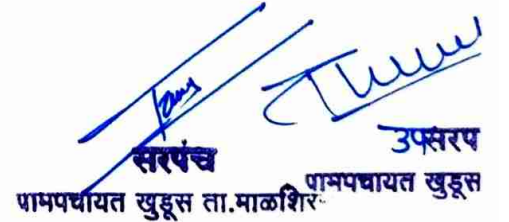 सरपंच
ग्रामपंचायत खुडूस ता.माळशिर
उपसरप
ग्रामपंचायत खुडूस